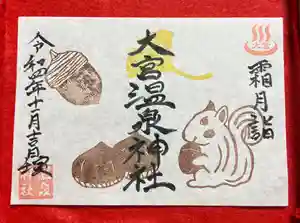 霜月詣
大宮温泉神社
令和四年十一月吉日